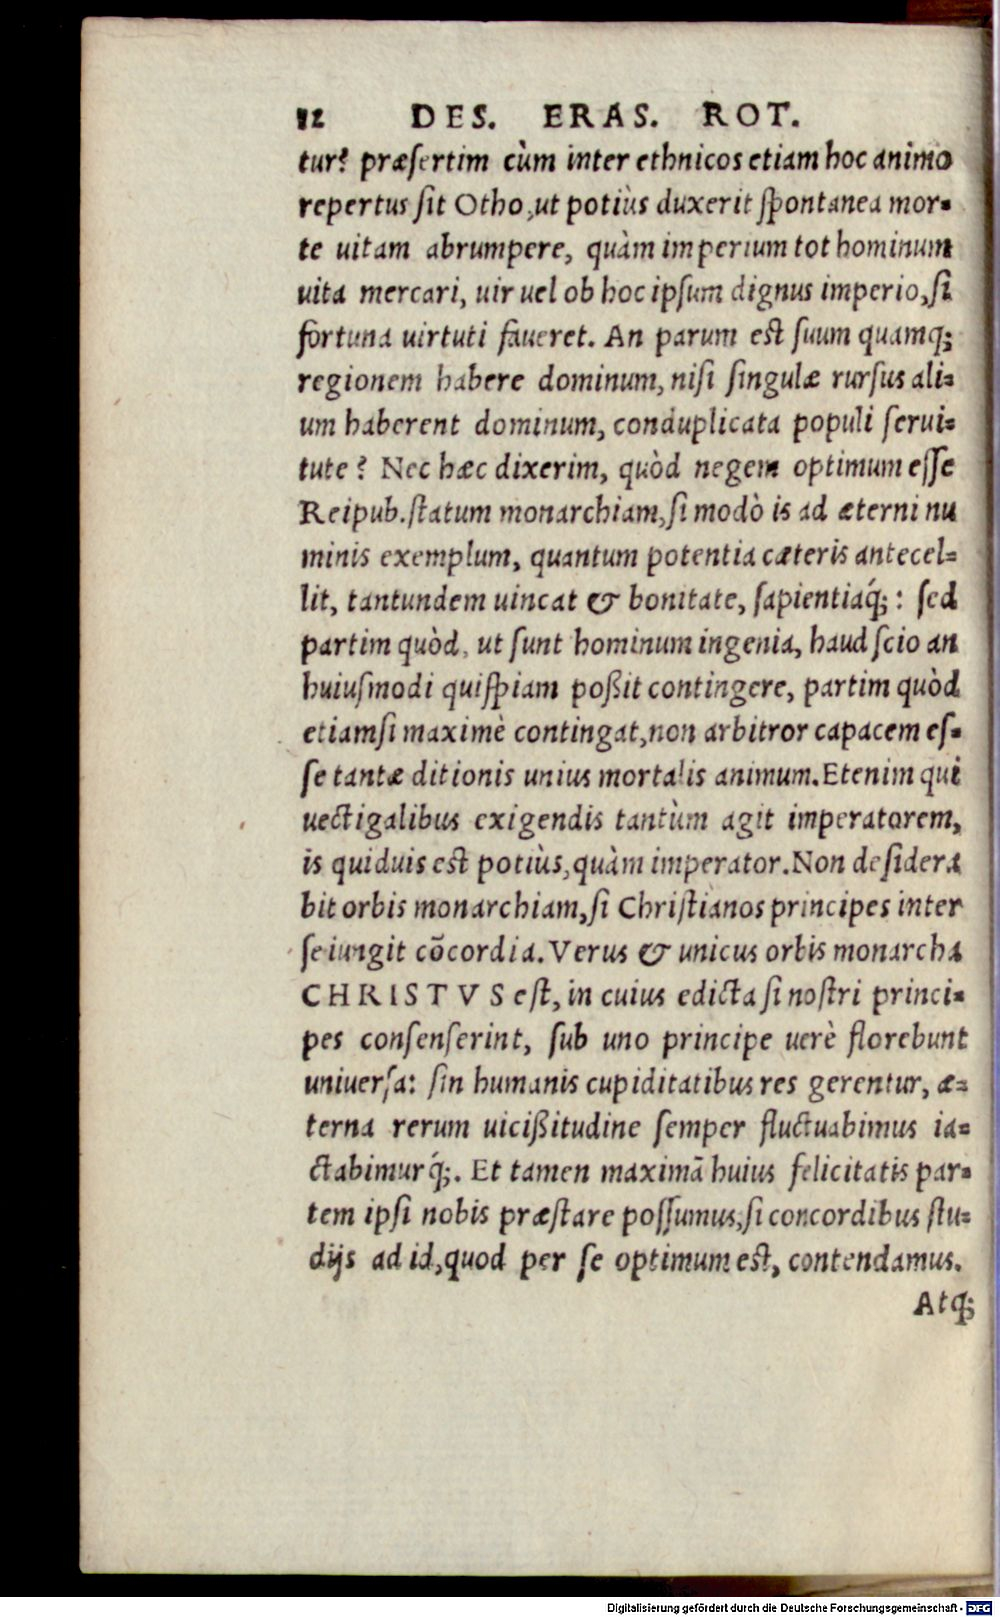 12 DES. ERAS. ROT.
tur? præsertim cùm inter ethnicos etiam hoc animo
repertus sit Otho, ut potiùs duxerit spontanea mor-
te uitam abrumpere, quàm imperium tot hominum
uita mercari, uir uel ob hoc ipsum dignus imperio, si
fortuna uirtuti faueret. An parum est suum quamq;
regionem habere dominum, nisi singulæ rursus ali-
um haberent dominum, conduplicata populi serui-
tute? Nec hæc dixerim, quòd negem optimum esse
Reipub. statum monarchiam, si modò is ad æterni nu
minis exemplum, quantum potentia cæteris antecel-
lit, tantundem uincat & bonitate, sapientiaq́;: sed
partim quòd, ut sunt hominum ingenia, haud scio an
huiusmodi quispiam poßit contingere, partim quòd
etiamsi maximè contingat, non arbitror capacem es-
se tantæ ditionis unius mortalis animum. Etenim qui
uectigalibus exigendis tantùm agit imperatorem,
is quiduis est potiùs, quàm imperator. Non desidera
bit orbis monarchiam, si Christianos principes inter
se iungit cõcordia. Verus & unicus orbis monarcha
CHRISTVS est, in cuius edicta si nostri princi-
pes consenserint, sub uno principe uerè florebunt
uniuersa: sin humanis cupiditatibus res gerentur, æ-
terna rerum uicißitudine semper fluctuabimus ia-
ctabimurq́;. Et tamen maximã huius felicitatis par-
tem ipsi nobis præstare possumus, si concordibus stu-
dijs ad id, quod per se optimum est, contendamus.
Atq;
Digitalisierung gefördert durch die Deutsche Forschungsgemeinschaft - DFG